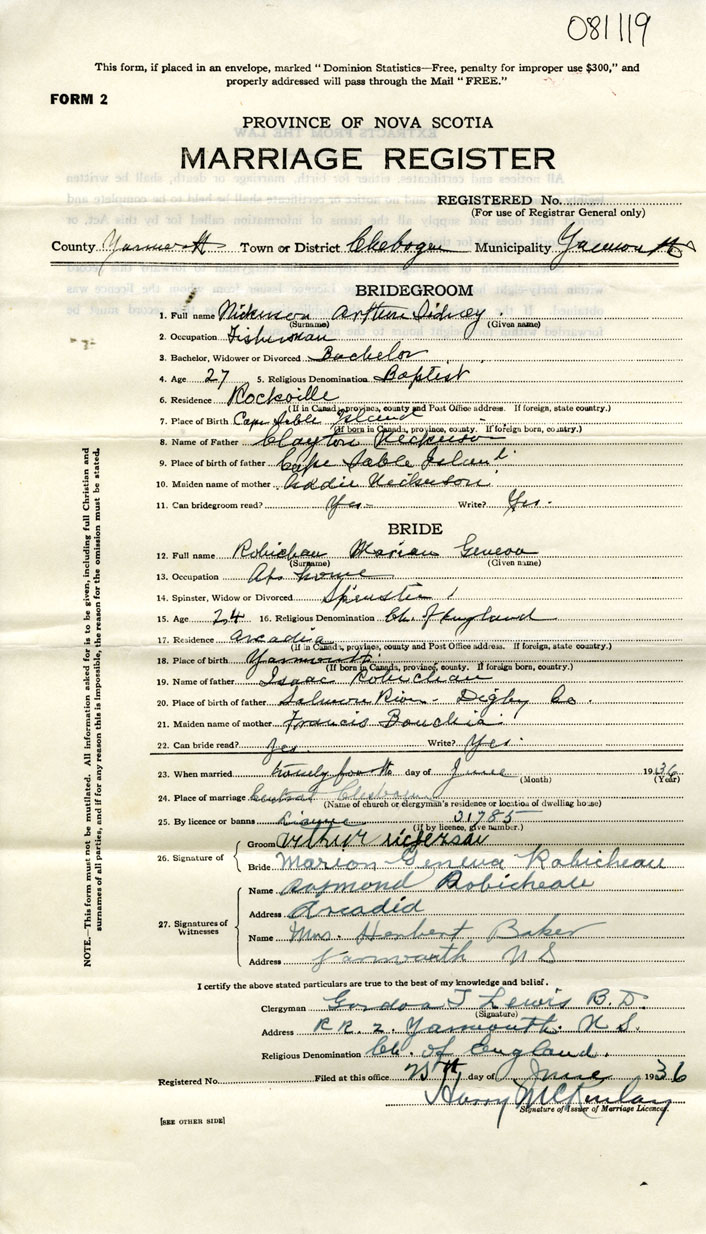 081119
This form, if placed in an envelope, marked "Dominion Statistics—Free, penalty for improper use $300," and
properly addressed will pass through the Mail "FREE."
FORM 2
PROVINCE OF NOVA SCOTIA
MARRIAGE REGISTER
REGISTERED No.
(For use of Registrar General only)
County Yarmouth Town or District Chebogue Municipality Yarmouth
BRIDEGROOM
1. Full name Nickerson Arthur Sidney
(Surname) (Given name)
2. Occupation Fisherman
3. Bachelor, Widower or Divorced Bachelor
4. Age 27 5. Religious Denomination Baptist
6. Residence Rockville
(If in Canada, province, county and Post Office address. If foreign, state country.)
7. Place of Birth Cape Sable Island
(If born in Canada, province, county. If foreign born, country.)
8. Name of Father Clayton Nickerson
9. Place of birth of father Cape Sable Island
10. Maiden name of mother Addie Nickerson
11. Can bridegroom read? Yes Write? Yes.
BRIDE
12. Full name Robichau Marian Geneva
(Surname) (Given name)
13. Occupation At home
14. Spinster, Widow or Divorced Spinster
15. Age 24 16. Religious Denomination Ch. of England
17. Residence Arcadia
(If in Canada, province, county and Post Office address. If foreign, state country.)
18. Place of birth Yarmouth
(If born in Canada, province, county. If foreign born, country.)
19. Name of father Isaac Robichau
20. Place of birth of father Salmon River Digby Co.
21. Maiden name of mother Francis
22. Can bride read? Yes. Write? Yes.
23. When married twenty fourth day of June 1936
(Month) (Year)
24. Place of marriage Central Chebogue
(Name of church or clergyman's residence or location of dwelling house)
25. By licence or banns License 31785
(If by licence, give number.)
26. Signature of Groom Arthur Nickerson
Bride Marion Geneva Robicheau
27. Signatures of Witnesses
Name Raymond Robicheau
Address Arcadia
Name Mrs. Herbert Baker
Address Yarmouth N S
I certify the above stated particulars are true to the best of my knowledge and belief.
Clergyman Gordon T Lewis B.D.
(Signature)
Address R.R. 2. Yarmouth. N.S.
Religious Denomination Ch. of England.
Registered No. Filed at this office 25th day of June 1936
Harry McKinlay
Signature of Issuer of Marriage Licences.
[SEE OTHER SIDE]
NOTE.—This form must not be mutilated. All information asked for is to be given, including full Christian and
surnames of all parties, and if for any reason this is impossible, the reason for the omission must be stated.